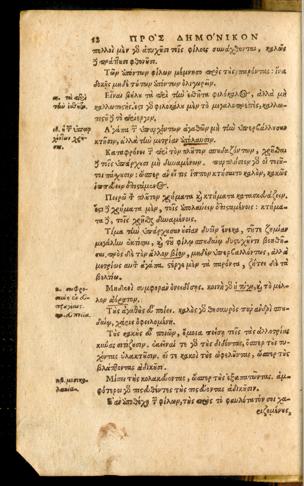 12 ΠΡΟΣ ΔΗΜΟΝΙΚΟΝ
πολλοὶ μὲν γὰρ ἀτυχοῦσι τοῖς φίλοις συνάχθονται, καλῶς
δὲ πράττουσι φθονοῦσι.
Τῶν ἀπόντων φίλων μέμνησο πρὸς τοὺς παρόντας: ἵνα
δοκῇς μηδὲ τούτων ἀπόντων ὀλιγωρεῖν.
Εἶναι βούλου τὰ περὶ τὴν ἐσθῆτα φιλόκαλος, ἀλλὰ μὴ
καλλωπιστής. ἔστι γὰρ φιλοκάλου μὲν τὸ μεγαλοπρεπές, καλλω-
πιστοῦ δὲ τὸ περίεργον.
Ἀγάπα τῶν ὑπαρχόντων ἀγαθῶν μὴ τὴν ὑπερβάλλουσαν
κτῆσιν, ἀλλὰ τὴν μετρίαν ἀπόλαυσιν.
Καταφρόνει τῶν περὶ τὸν πλοῦτον σπουδαζόντων, χρῆσθαι
δὲ τοῖς ὑπάρχουσι μὴ δυναμένων. παραπλήσιον γὰρ οἱ τοιοῦ-
τοι πάσχουσιν: ὥσπερ ἂν εἴ τις ἵππον κτήσαιτο καλόν, κακῶς
ἱππεύειν ἐπιστάμενος.
Πειρῶ τὸν πλοῦτον χρήματα καὶ κτήματα κατασκευάζειν.
ἔστι δὲ χρήματα μὲν, τοῖς ἀπολαύειν ἐπισταμένοις: κτήμα-
τα δὲ, τοῖς χρῆσθαι δυναμένοις.
Τίμα τὴν ὑπάρχουσαν οὐσίαν δυοῖν ἕνεκα, τοῦτε ζημίαν
μεγάλην ἐκτῖσαι, καὶ τοῦ φίλῳ σπουδαίῳ δυστυχοῦντι βοηθῆ-
σαι. πρὸς δὲ τὸν ἄλλον βίον, μηδὲν ὑπερβαλλόντως, ἀλλὰ
μετρίως αὐτὴν ἀγάπα. στέργε μὲν τὰ παρόντα, ζήτει δὲ τὰ
βελτίω.
Μηδενὶ συμφορὰν ὀνειδίσῃς. κοινὴ γὰρ ἡ τύχη, καὶ τὸ μέλ-
λον ἀόρατον.
Τοὺς ἀγαθοὺς εὖ ποίει. καλὸς γὰρ θησαυρὸς παρ' ἀνδρὶ σπου-
δαίῳ, χάρις ὀφειλομένη.
Τοὺς κακοὺς εὖ ποιῶν, ὅμοια πείσῃ τοῖς τὰς ἀλλοτρίας
κύνας σιτίζουσιν. ἐκεῖναί τε γὰρ τοὺς διδόντας, ὥσπερ τοὺς τυ-
χόντας ὑλακτοῦσιν. οἵ τε κακοὶ τοὺς ὠφελοῦντας, ὥσπερ τοὺς
βλάπτοντας ἀδικοῦσι.
Μίσει τοὺς κολακεύοντας, ὥσπερ τοὺς ἐξαπατῶντας. ἀμ-
φότεροι γὰρ πιστευθέντες τοὺς πιστεύσαντας ἀδικοῦσιν.
Ἐὰν ἀποδέχῃ τῶν φίλων, τοὺς πρὸς τὸ φαυλότατόν σοι χα-
ριζομένους,